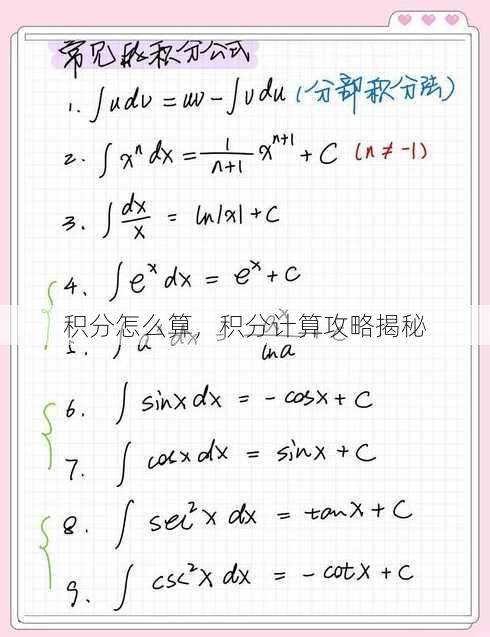 常见的积分公式
1. ∫udv = uv - ∫vdu (分部积分法)
2. ∫xⁿdx = 1/(n+1) xⁿ⁺¹ + C (n ≠ -1)
3. ∫dx/x = ln|x| + C
4. ∫eˣdx = eˣ + C
积分怎么算，积分计算攻略揭秘
5. ∫aˣdx = aˣ/lna + C
6. ∫sinxdx = -cosx + C
7. ∫cosxdx = sinx + C
8. ∫sec²xdx = tanx + C
9. ∫csc²xdx = -cotx + C